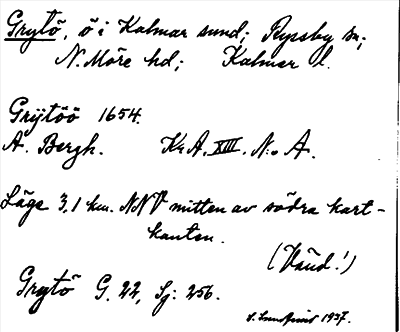 Grytö, ö i Kalmar sund; Ryssby sn;
N. Möre hd; Kalmar l.
Grÿtöö 1654.
A. Bergh. Kr. A. XIII. N:o A.
Läge 3,1 km. NNV mitten av södra kart-
kanten.
(Vänd!)
Grytö G. 22, Sj: 256.
1937.